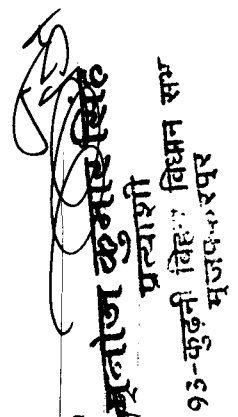 मनोज कुमार
प्रत्याशी
93-कुढ़नी बिहार विधान सभा
मुजफ्फरपुर